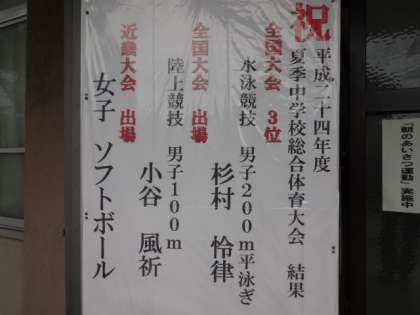 祝
平成二十四年度
夏季中学校総合体育大会 結果
全国大会 3位
水泳競技 男子200m平泳ぎ
杉村 怜律
全国大会 出場
陸上競技 男子100m
小谷 風祈
近畿大会 出場
女子 ソフトボール
「朝のあいさつ運動」実施中